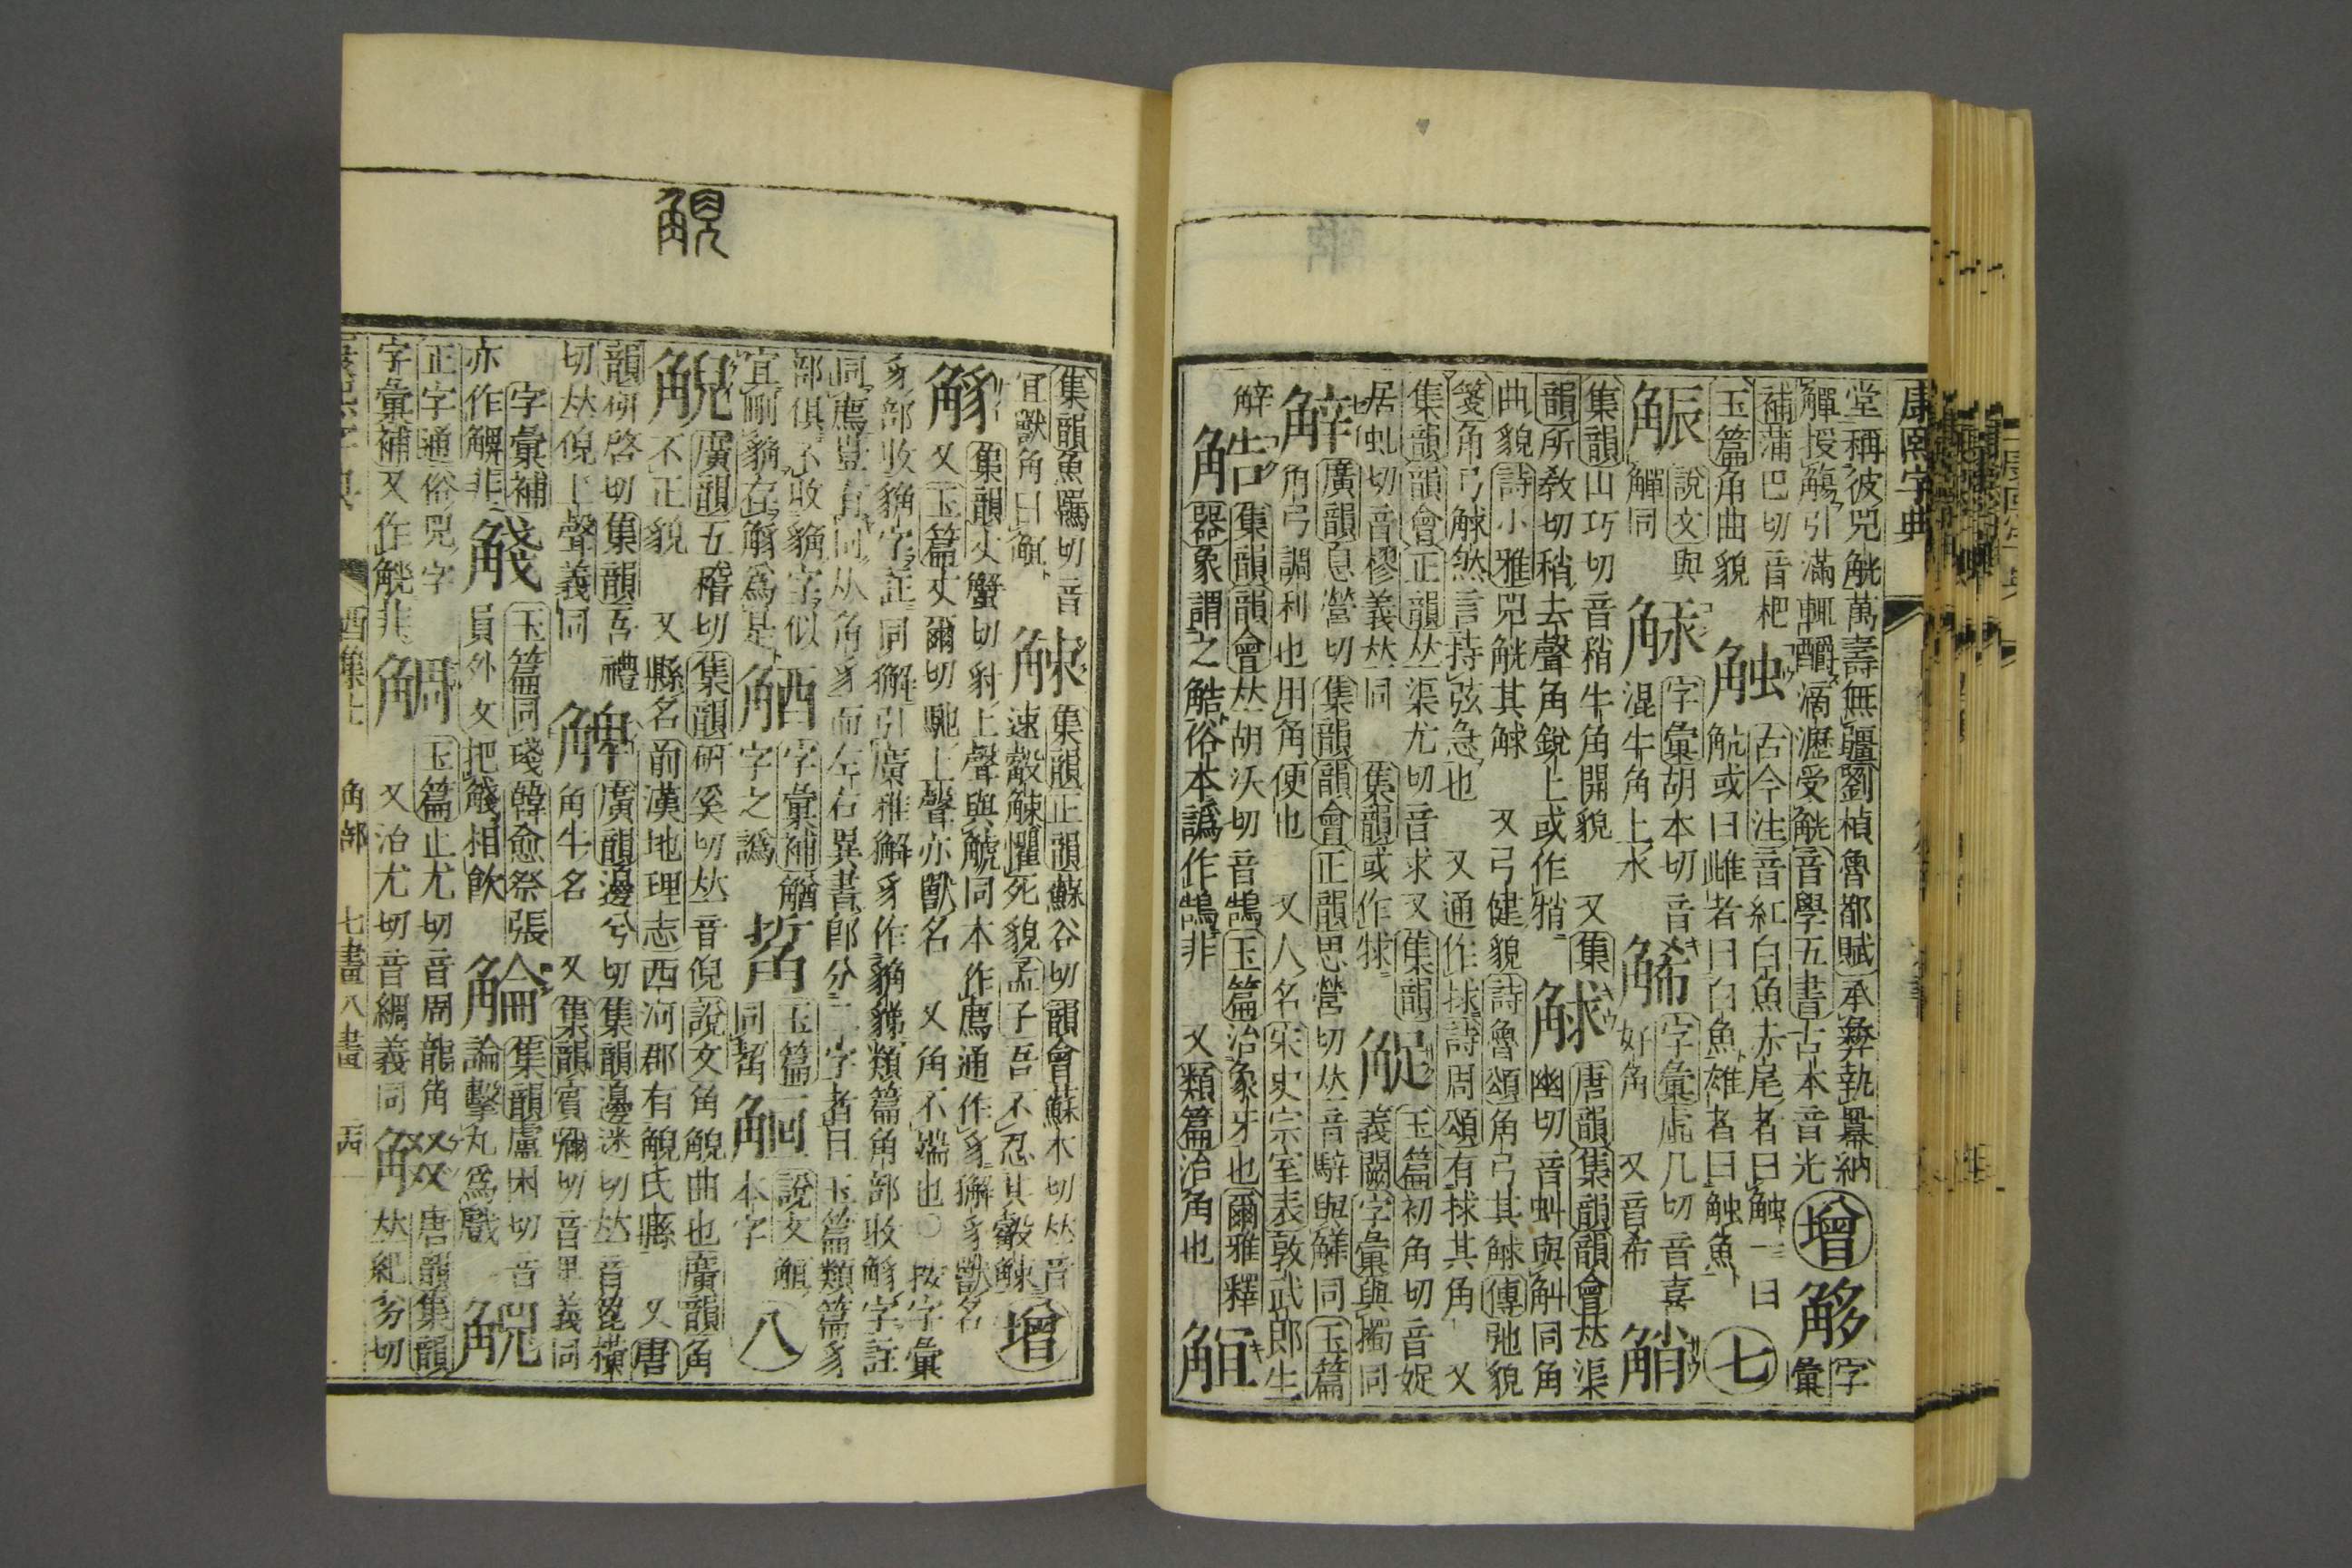 康熙字典
堂稱彼兕觥萬壽無疆劉楨魯都賦承彝執羃納
觶授觴引滿輒釂滴瀝受觥音學五書古本音光
增
觢字
彙
補蒲巴切音杷
玉篇角曲貌
觕
古今注音紅白魚赤尾者曰觸一曰
魧或曰雌者曰白魚雄者曰觸魚
七
觨
說文與
觶同
字彙胡本切音
混牛角上水
字彙虛几切音喜
好角 又音希
觘
集韻山巧切音稍牛角開貌 又集
韻所敎切稍去聲角銳上或作䚫
觩
唐韻集韻韻會𠀤渠
幽切音虯與觓同角
曲貌詩小雅兕觥其觩 又弓健貌詩魯頌角弓其觩傳弛貌
箋角弓觩然言持弦急也 又通作捄詩周頌有捄其角 又
集韻韻會正韻𠀤渠尤切音求 又集韻
居虬切音樛義𠀤同 集韻或作㺩
玉篇初角切音娖
義闕字彙與擉同
觪
廣韻息營切集韻韻會正韻思營切𠀤音騂與觲同玉篇
角弓調利也用角便也 又人名宋史宗室表敦武郎生
觪
觡
集韻韻會𠀤胡沃切音鵠玉篇治象牙也爾雅釋
器象謂之觷俗本譌作鵠非 又類篇治角也
觛
集韻魚羈切音
宜獸角曰䚐
觫
集韻正韻蘇谷切韻會蘇木切𠀤音
速觳觫懼死貌孟子吾不忍其觳觫
增
集韻丈蟹切豸上聲與觽同本作廌通作豸獬豸獸名
又玉篇丈爾切馳上聲亦獸名 又角不端也 按字彙
豸部收䝤字註同獬引廣雅獬豸作䝤䝱類篇角部收字註
同廌豈有同从角豸而左右異書卽分二字者曰玉篇類篇豸
部俱不收字似
宜刪在爲是
字彙補䚡
字之譌
玉篇
同觢
說文觝
本字
八
觬
廣韻五稽切集韻硏奚切𠀤音倪說文角觬曲也廣韻角
不正貌 又縣名前漢地理志西河郡有觬氏縣 又唐
韻硏啓切集韻吾禮
切𠀤倪上聲義同
觯
廣韻邊兮切集韻邊迷切𠀤音𥱼橫
角牛名 又集韻賓彌切音卑義同
字彙補
亦作觶非
䚉
玉篇同琖韓愈祭張
員外文把䚉相飮
䚕
集韻盧困切音
論擊丸爲戲
正字通俗兕字
字彙補又作觥非
䚇
玉篇止尤切音周龍角
又治尤切音綢義同
唐韻集韻
𠀤紀劣切
觬
康熙字典 酉集上 角部 七畫八畫